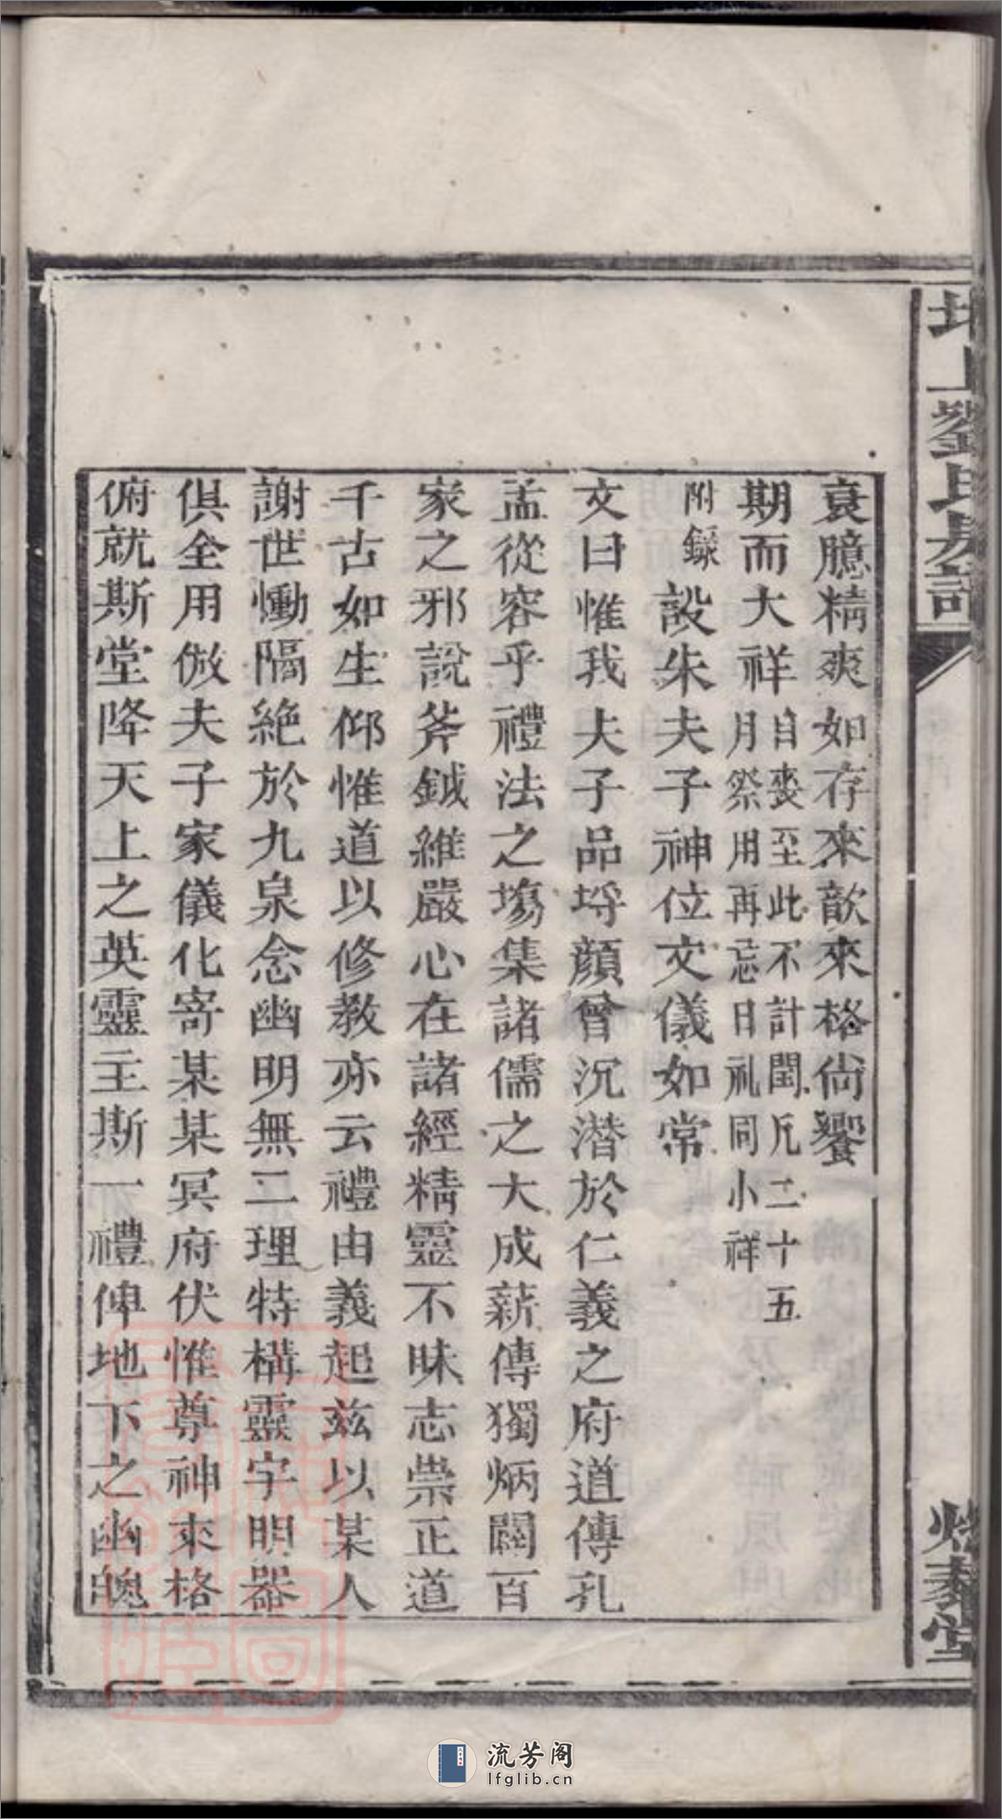 劉氏
衰臆精爽如存來歆來格尙饗
期而大祥自喪至此不計閏凡二十五
月祭用再忌日礼同小祥
附錄設朱夫子神位文儀如常
文曰惟我夫子品埓顔曾沉潛於仁義之府道傳孔
孟從容乎禮法之塲集諸儒之大成薪傳獨炳闢百
家之邪說斧鉞維嚴心在諸經精靈不昧志崇正道
千古如生仰惟道以修教亦云禮由義起兹以某人
謝世慟隔絶於九泉念幽明無二理特構靈宇明器
俱全用倣夫子家儀化寄某某冥府伏惟尊神來格
俯就斯堂降天上之英靈主斯一禮俾地下之幽魄
流芳阁
lfglib.cn